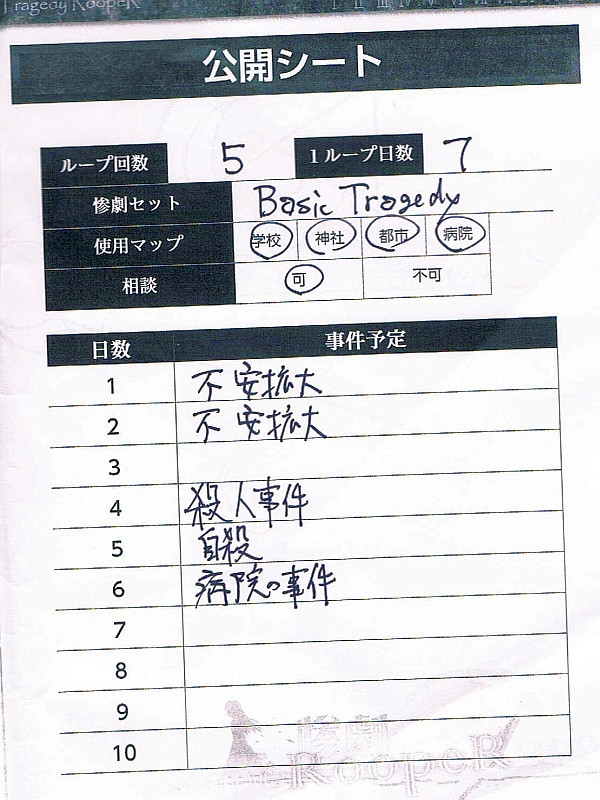 Tragedy RoopeR
公開シート
ループ回数 5 1ループ日数 7
惨劇セット Basic Tragedy
使用マップ 学校 神社 都市 病院
相談 可 不可
日数 事件予定
1 不安拡大
2 不安拡大
3
4 殺人事件
5 自殺
6 病院の事件
7
8
9
10
惨劇
RoopeR